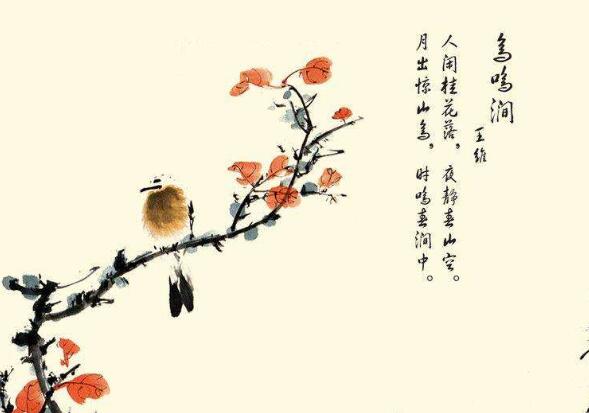 鸟鸣涧
王维
人闲桂花落，夜静春山空。
月出惊山鸟，时鸣春涧中。